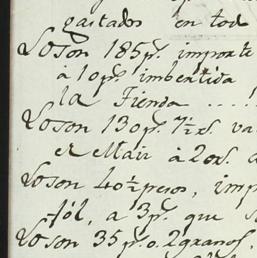 gastados en tod
Lo son 185 p.s importe
à 10 p.s imbertida
la Tienda ....
Lo son 130 p.s 7½ rs. va
el Maiz à 20 rs. a
Lo son 40½ pesos, imp
a 3 p.s que
Lo son 35 p.s o. 2 granos,